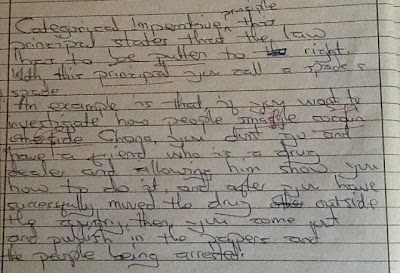 principle
Categorical Imperative: this
principal states that the law
has to be putten to right.
With this principal you call a spade a
spade
An example is that, if you want to
investigate how people smuggle cocain
outside Ghana, you dont go and
have a friend who is a drug
dealer and allowing him show you
how to do it, and after you have
successfully moved the drug outside
the country, then you come out
and publish in the papers and
the people being arrested.